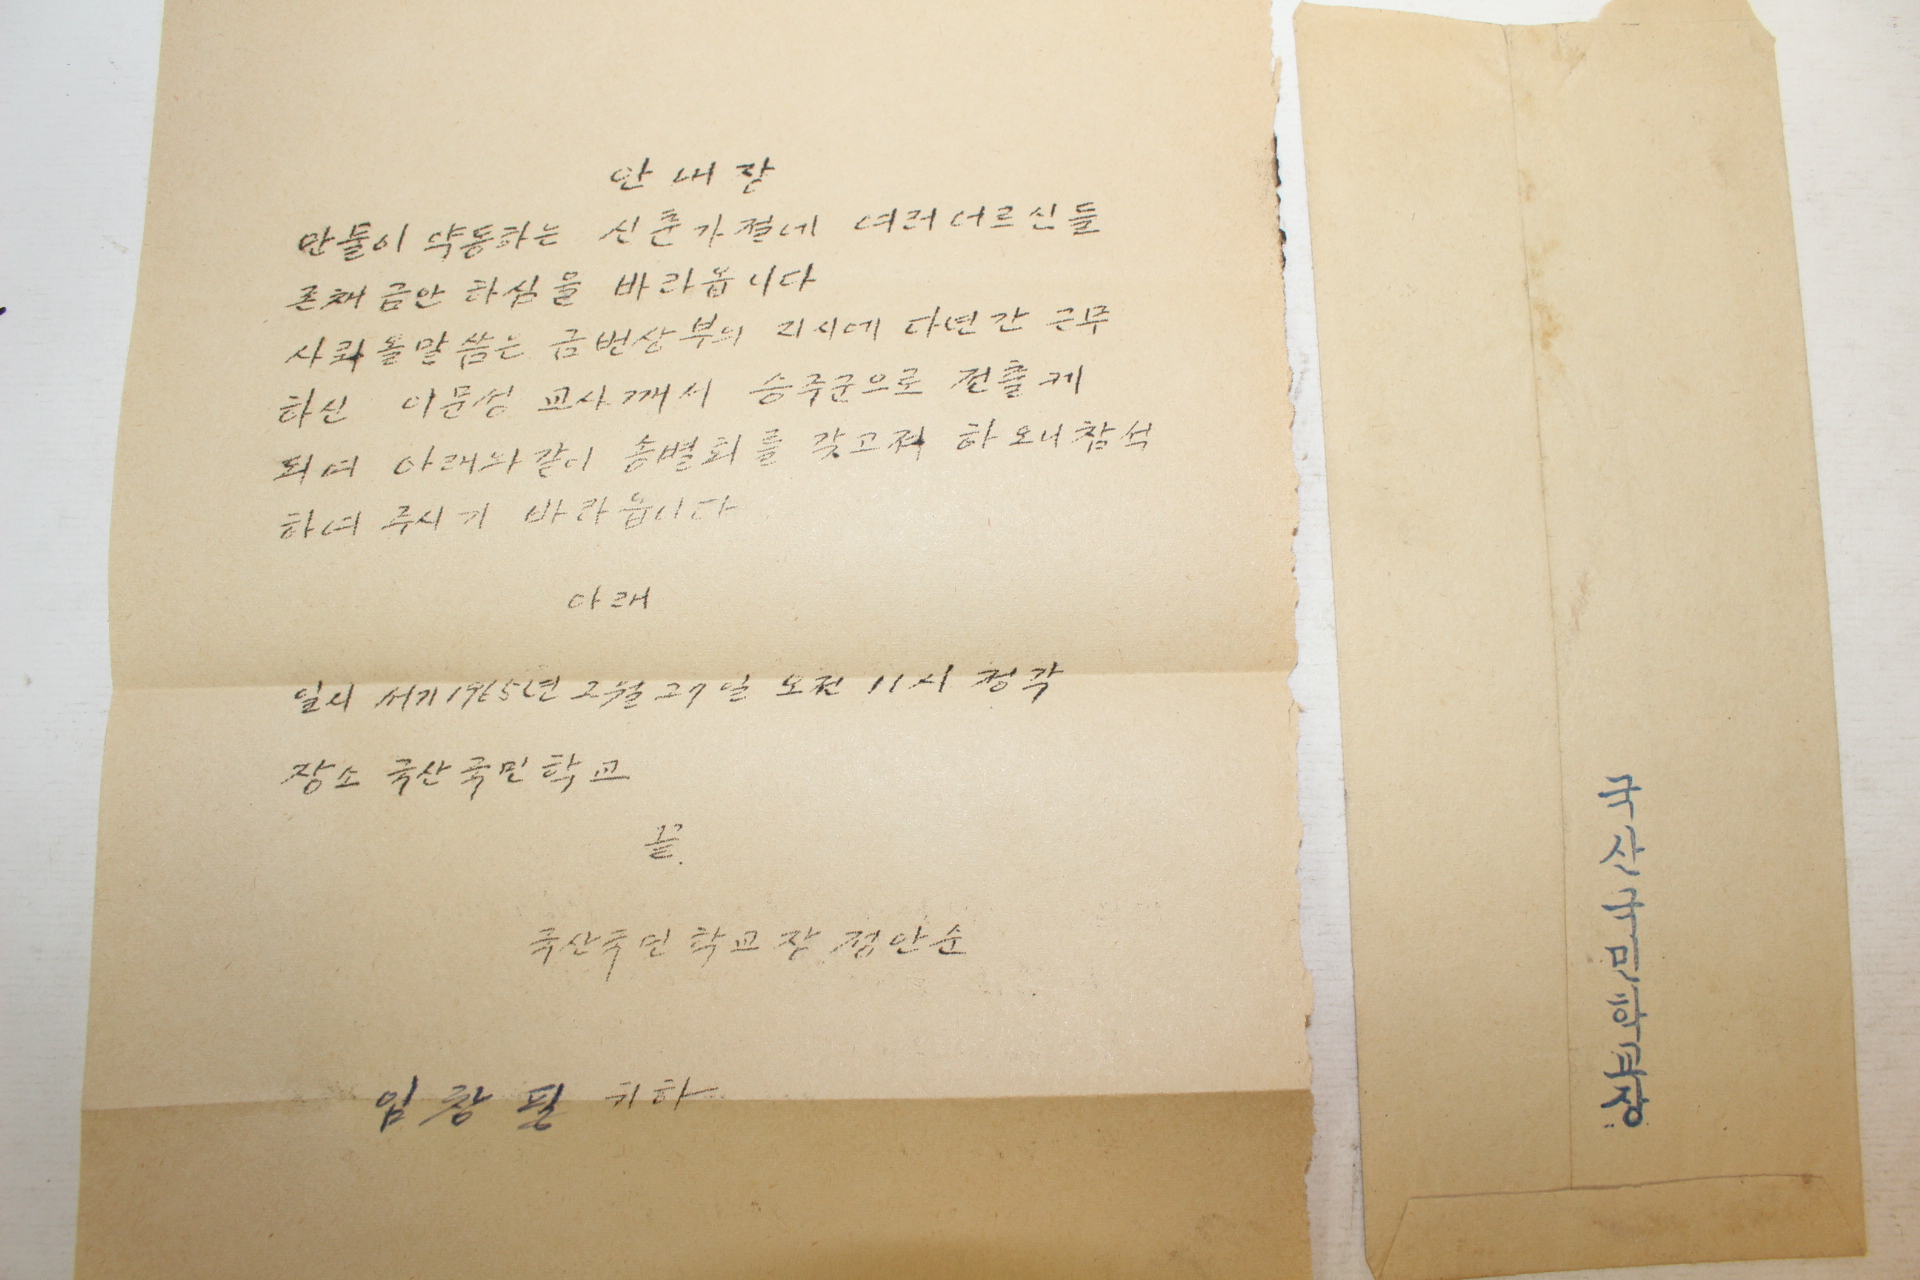 안내장
만물이 약동하는 신춘가절에 여러어르신들
존체금안하심을 바라옵니다
사뢰올말씀은 금번상부의 지시에 다년간 근무
하신 이문성 교사께서 승주군으로 전출케
되여 아래와같이 송별회를 갖고저 하오니참석
하여 주시기 바라옵니다
아래
일시 서기1965년 2월 27일 오전 11시 정각
장소 국산국민학교
끝.
국산국민학교장 정안순
임창필 귀하
국산국민학교장